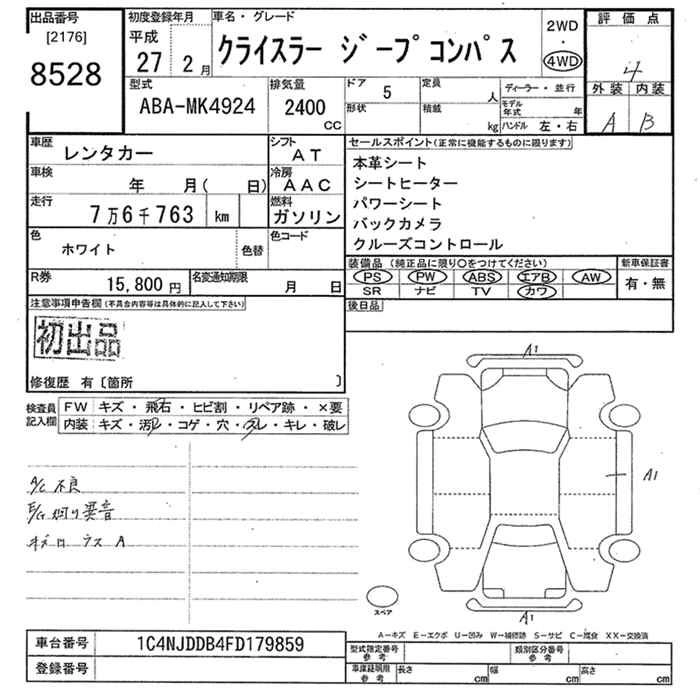 出品番号
[2176]
8528
初度登録年月
平成
27 2月
車名・グレード
クライスラー ジープコンパス
2WD
・
4WD
評価点
4
外装 内装
A B
型式
ABA-MK4924
排気量
2400
CC
ドア
5
形状
定員
人
積載
kg
ディーラー・並行
モデル年式
年
ハンドル 左・右
車歴
レンタカー
シフト
AT
車検
年 月( 日)
冷房
AAC
走行
7万6千763 km
燃料
ガソリン
色
ホワイト
色替
色コード
R券
15,800円
名変通知期限
月 日
セールスポイント(正常に機能するものに限ります)
本革シート
シートヒーター
パワーシート
バックカメラ
クルーズコントロール
装備品 (純正品に限り○をつけてください)
PS PW ABS エアB AW
SR ナビ TV カワ
新車保証書
有・無
後日品
注意事項申告欄(不具合内容等は具体的に記入して下さい)
初出品
修復歴 有〔箇所 〕
検査員記入欄
FW キズ・飛石・ヒビ割・リペア跡・×要
内装 キズ・汚レ・コゲ・穴・スレ・キレ・破レ
A/C 不良
E/G 異音
A
A1
A1
A1
スペア
A-キズ E-エクボ U-凹み W-補修跡 S-サビ C-腐食 XX-交換済
車台番号
1C4NJDDB4FD179859
登録番号
型式指定番号
参考
類別区分番号
参考
車庫証明用
参考
長さ cm
幅 cm
高さ cm